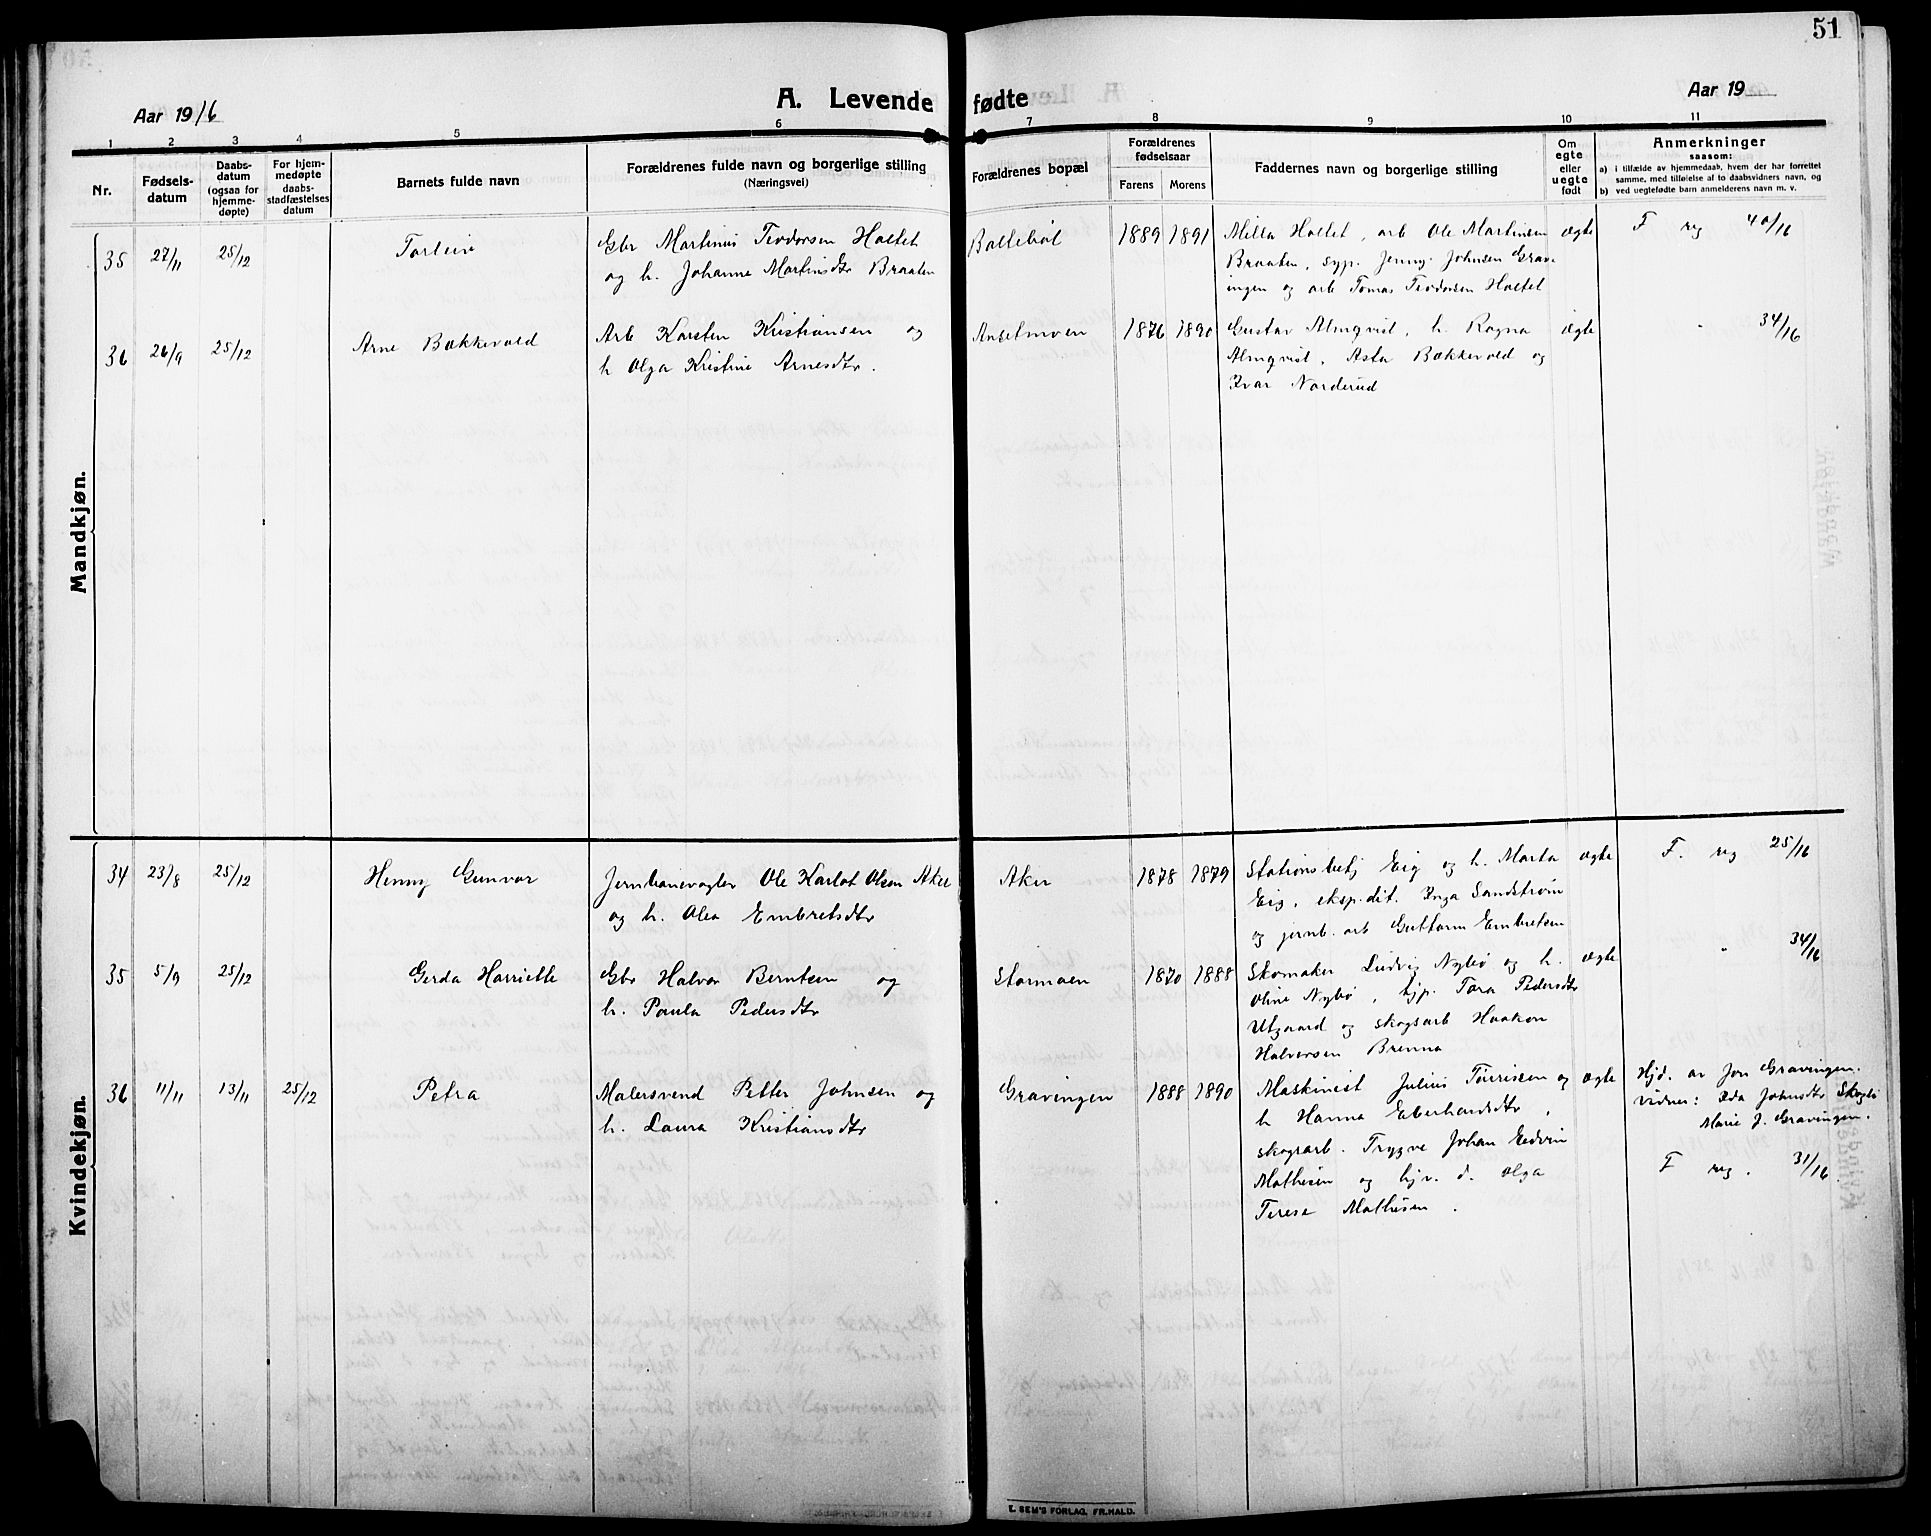 51
A. Levende fødte
Aar 1916
Aar 19
1 2 3 4 5 6 7 8 9 10 11
Nr.
Fødsels-
datum
Daabs-
datum
(ogsaa for
hjemme-
døpte)
For hjem-
medøpte
daabs-
stadfæstelses
datum
Barnets fulde navn
Forældrenes fulde navn og borgerlige stilling
(Næringsvei)
Forældrenes bopæl
Forældrenes
fødselsaar
Farens Morens
Faddernes navn og borgerlige stilling
Om
egte
eller
uegte
født
Anmerkninger
saasom:
a) i tilfælde av hjemmedaab, hvem der har forrettet
samme, med tilføielse af to daabsvidners navn, og
b) ved uegtefødte barn anmelderens navn m. v.
Mandkjøn.
35 27/11 25/12 Torleiv
Gbr Martinius Teodorsen Holtet
og h. Johanne Martinsdtr Braaten
Bollebøl 1889 1891
Milla Holtet, arb Ole Martinsen
Braaten, syp. Jenny Johnsen Grav-
ingen og arb Tomas Teodorsen Holtet
egte F reg 40/16
36 26/9 25/12 Arne Bækkevold
Arb Karsten Kristiansen og
h Olga Kristine Arnesdtr.
Anselmoen 1876 1890
Gustav Almqvist, h. Ragna
Almqvist, Asta Bækkevold og
Ivar Norderud
egte " 34/16
Kvindekjøn.
34 23/8 25/12 Henny Gunvor
Jernbanevogter Ole Karlot Olsen Aker
og h. Olea Embretsdtr
Aker 1878 1879
Stationsbetj Eig og h. Marta
Eig, eksp.dit. Inga Sandstrøm
og jernb. arb Guttorm Embretsen
egte F. reg 25/16
35 5/9 25/12 Gerda Harriette
Gbr Halvor Berntsen og
h. Paula Pedersdtr
Stormoen 1870 1888
Skomaker Ludvig Nybø og h.
Oline Nybø, hjp. Tora Pedersdtr
Utgaard og skogsarb Haakon
Halvorsen Brenna
egte " 34/16
36 11/11 13/11 25/12 Petra
Malersvend Petter Johnsen og
h. Laura Kristiansdtr
Gravingen 1888 1890
Maskinist Julius Tørrissen og
h Hanna Eberhardsdtr,
skogsarb. Trygve Johan Edvin
Mathisen og hjv. d. Olga
Terese Mathisen.
egte Hjd. av Jon Gravingen.
Vidner: Eda Johnsdtr Skogli
Marie J. Gravingen.
F reg. 31/16
E. SEM'S FORLAG, FR.HALD.